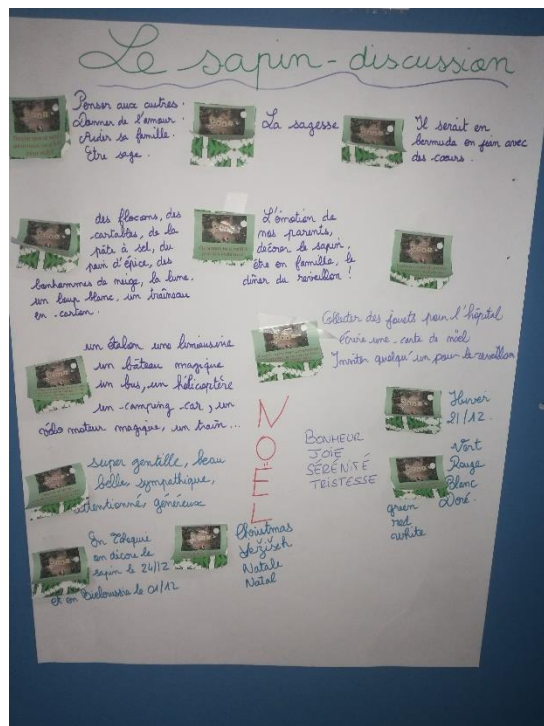 Le sapin-discussion
Penser aux autres.
Donner de l'amour.
Aider sa famille.
Être sage.
La sagesse
Il serait en
bermuda en juin avec
des cœurs.
des flocons, des
cartables, de la
pâte à sel, du
pain d'épice, des
bonhommes de neige, la lune.
un loup blanc, un traineau
en carton.
L'émotion de
nos parents,
décorer le sapin,
être en famille, le
dîner du réveillon!
Collecter des jouets pour l'hôpital
Écrire une carte de nöel
Inviter quelqu'un pour le réveillon
un étalon une limousine
un bâteau magique
un bus, un hélicoptère
un camping car, un
vélo moteur magique, un train...
NOËL
BONHEUR
JOIE
SÉRÉNITÉ
TRISTESSE
Hiver
21/12.
Vert
Rouge
Blanc
Doré.
green
red
white
super gentille, beau
belle, sympathique,
attentionné, généreux
En Tchèque
on décore le
sapin le 24/12
et en Bielorussie le 01/12
Christmas
Natale
Natal